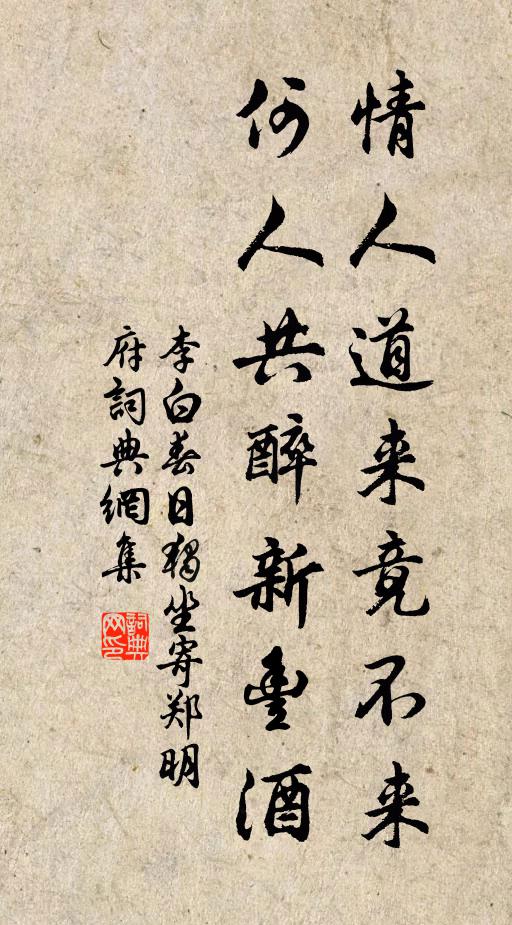 情人道来竟不来
何人共醉新豊酒
李白春日独坐寄郑明
府詞典網集
詞典
网印